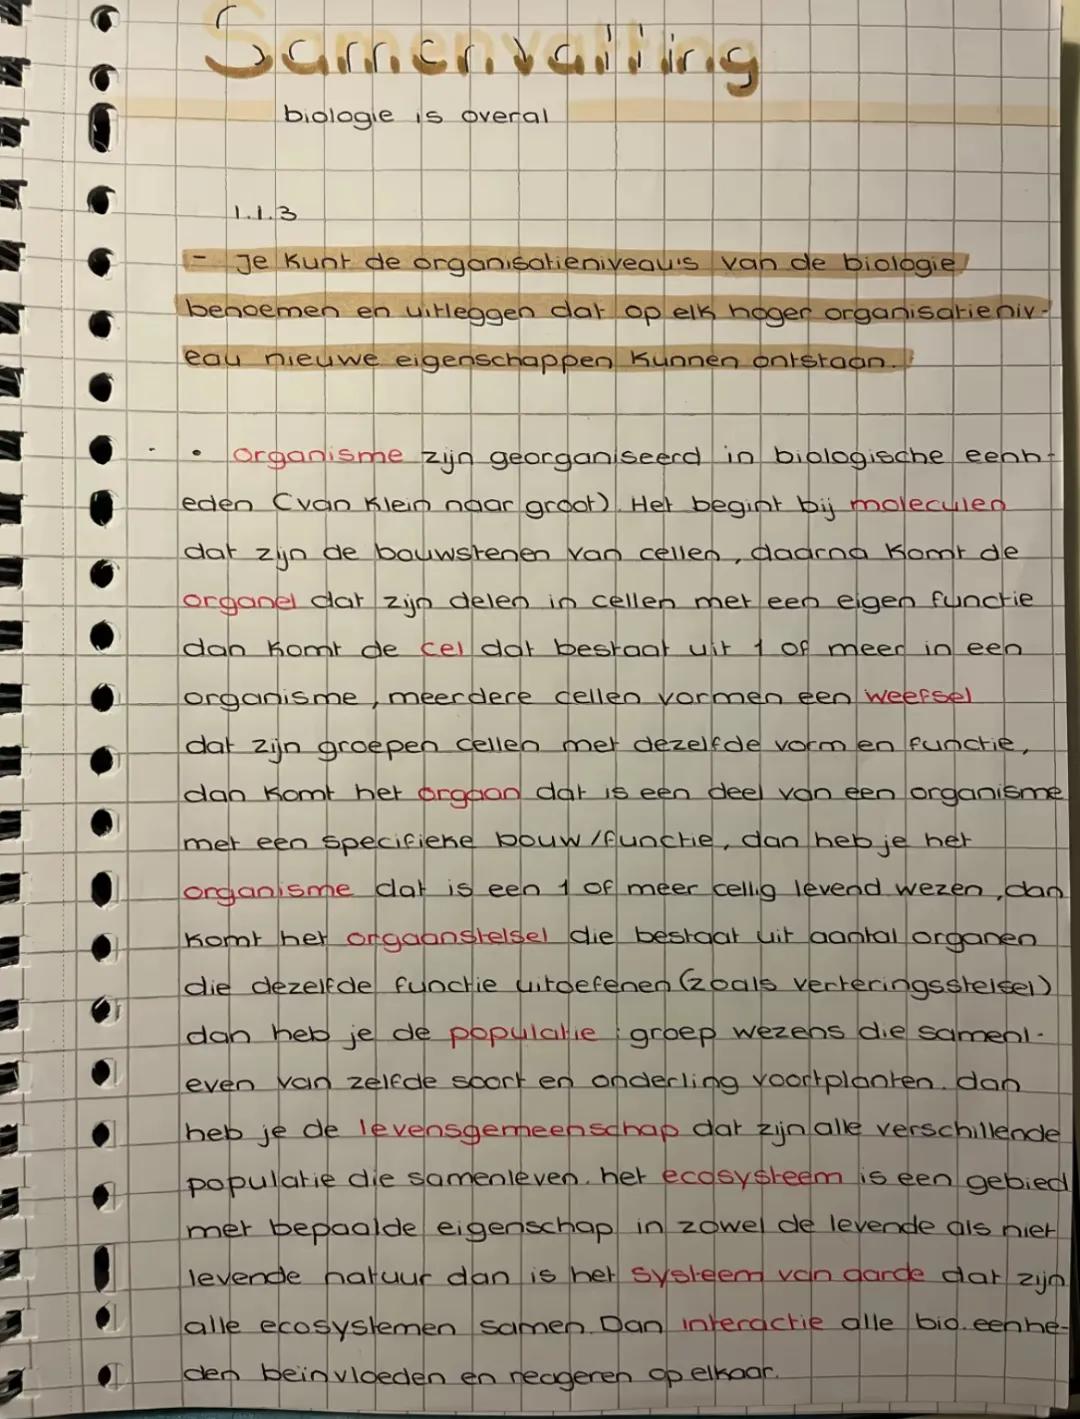 Samenvatting
biologie is overal
1.1.3
- Je kunt de organisatieniveau's van de biologie
benoemen en uitleggen dat op elk hoger organisatieniv-
eau nieuwe eigenschappen kunnen ontstaan.
• organisme zijn georganiseerd in biologische eenh-
eden (van klein naar groot). Het begint bij moleculen
dat zijn de bouwstenen van cellen, daarna komt de
organel dat zijn delen in cellen met een eigen functie
dan komt de cel dat bestaat uit 1 of meer in een
organisme, meerdere cellen vormen een weefsel
dat zijn groepen cellen met dezelfde vorm en functie,
dan komt het orgaan dat is een deel van een organisme
met een specifieke bouw/functie, dan heb je het
organisme dat is een 1 of meer cellig levend wezen, dan
komt het orgaanstelsel die bestaat uit aantal organen
die dezelfde functie uitoefenen (zoals verteringsstelsel)
dan heb je de populatie: groep wezens die samenl-
even van zelfde soort en onderling voortplanten. dan
heb je de levensgemeenschap dat zijn alle verschillende
populatie die samenleven. het ecosysteem is een gebied
met bepaalde eigenschap in zowel de levende als niet
levende natuur dan is het systeem van aarde dat zijn
alle ecosystemen samen. Dan interactie alle bio.eenhe-
den beïnvloeden en reageren op elkaar.